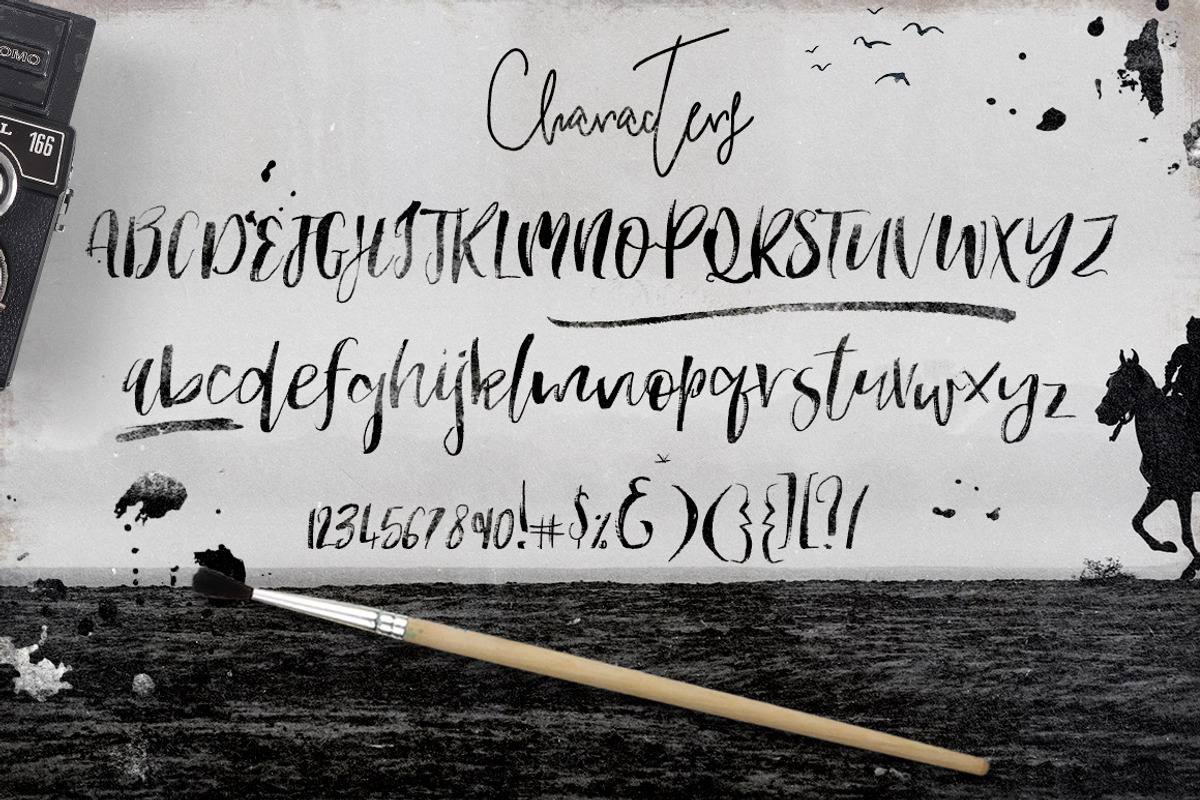 Characters
ABCDEFGHIJKLMNOPQRSTUVWXYZ
abcdefghijklmnopqrstuvwxyz
1234567890!#$%&)(}{][?/
OMO
L 166